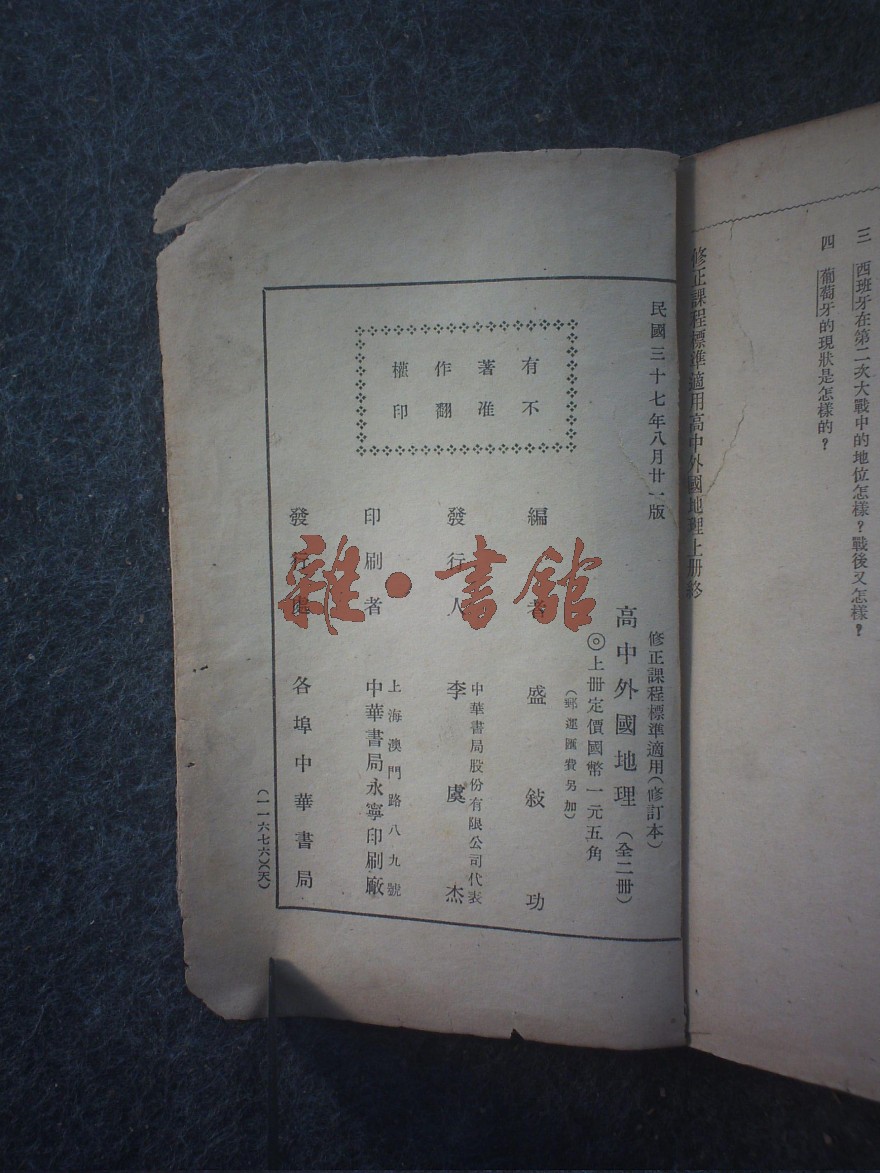 三　西班牙在第二次大戰中的地位怎樣？戰後又怎樣？
四　葡萄牙的現狀是怎樣的？
修正課程標準適用高中外國地理上册終
民國三十七年八月廿一版
有不
著准
作翻
權印
修正課程標準適用（修訂本）
高中外國地理（全二冊）
◎上册定價國幣一元五角
（郵運匯費另加）
編者　盛敍功
中華書局股份有限公司代表
發行人　李虞杰
上海澳門路八九號
印刷者　中華書局永寧印刷廠
發行處　各埠中華書局
（一一六七六）（天）
雜·書館